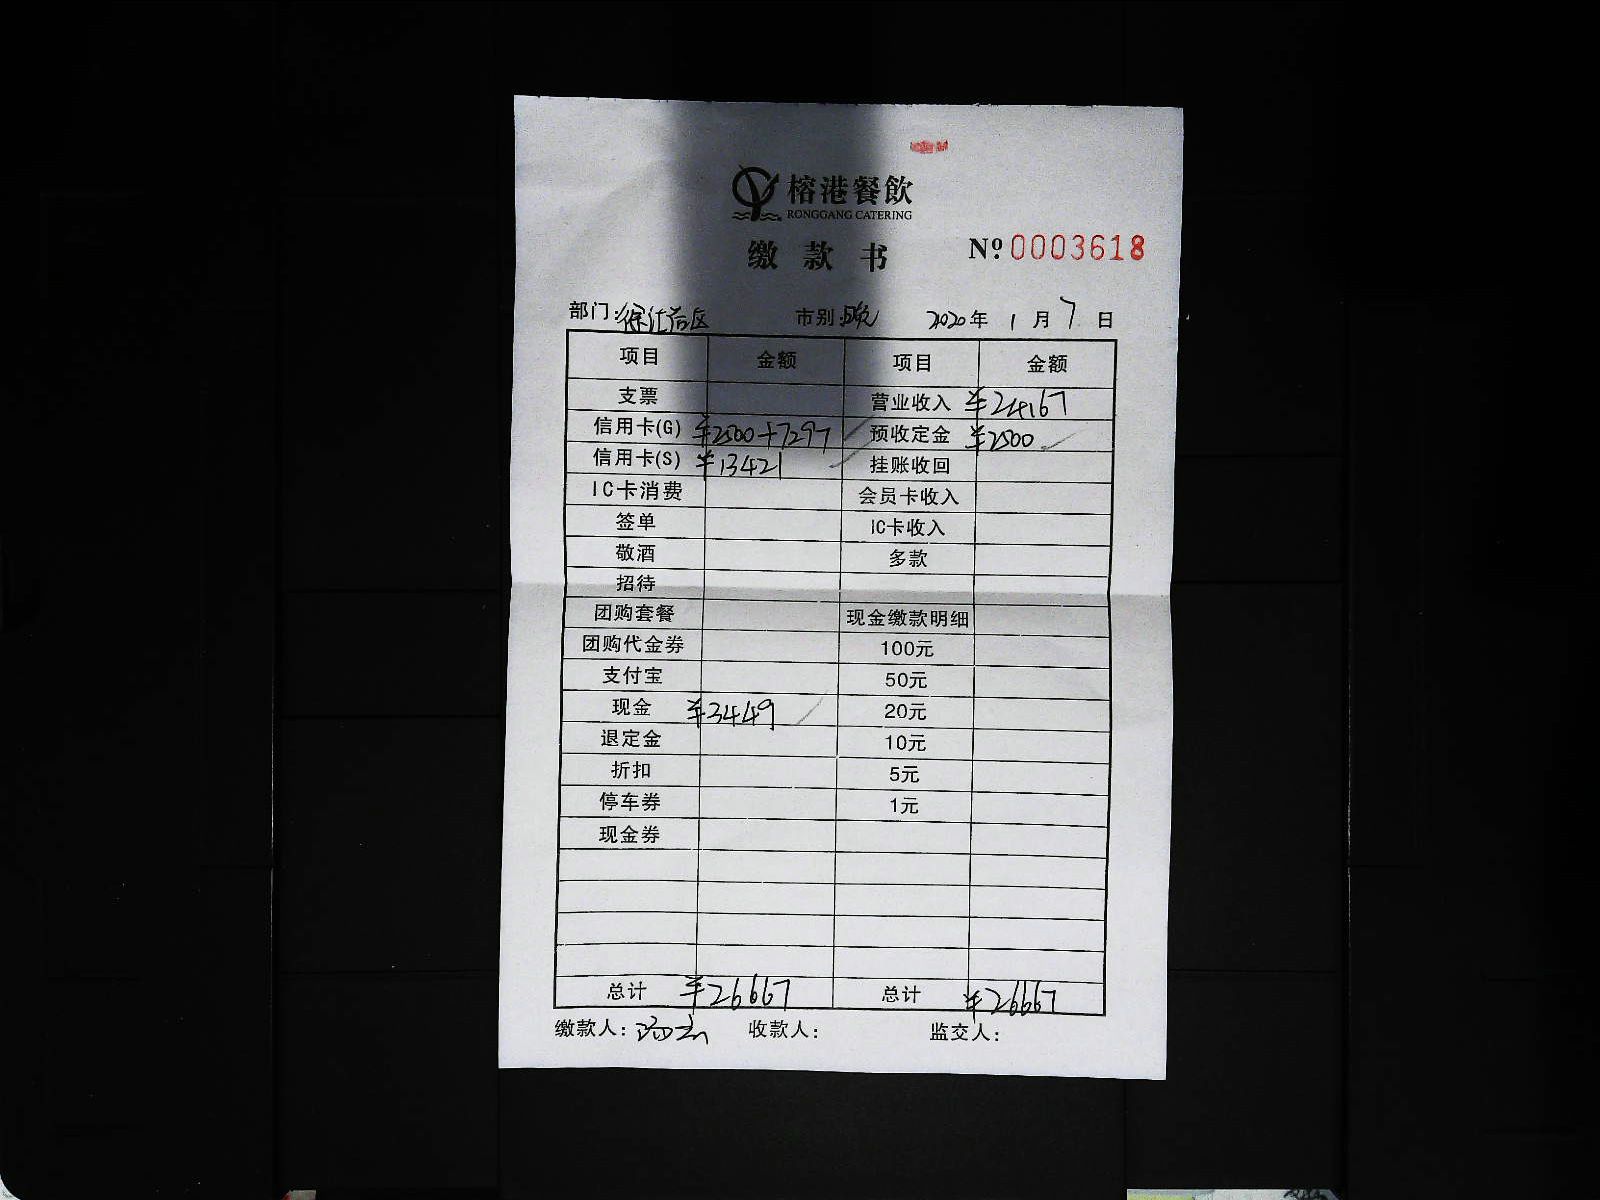 榕港餐飲
RONGGANG CATERING
缴款书
Nº 0003618
部门: 徐汇 区 市别: 晚 2020年 1月 7日
项目 金额 项目 金额
支票 营业收入 ¥24167
信用卡(G) ¥2500+7297 预收定金 ¥2500
信用卡(S) ¥13421 挂账收回
IC卡消费 会员卡收入
签单 IC卡收入
敬酒 多款
招待
团购套餐 现金缴款明细
团购代金券 100元
支付宝 50元
现金 ¥3449 20元
退定金 10元
折扣 5元
停车券 1元
现金券
总计 ¥26667 总计 ¥26667
缴款人: 收款人: 监交人: